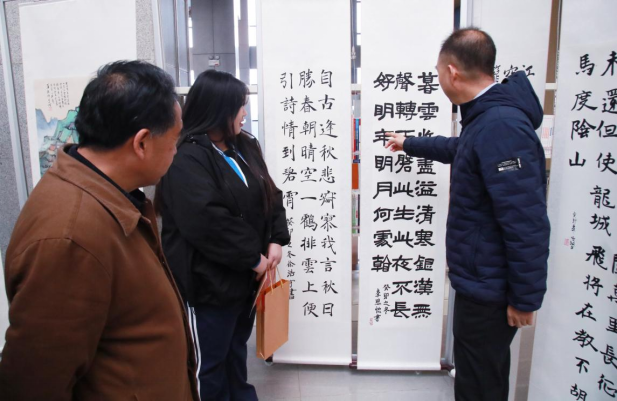 長征
未還但使龍城飛將在教不胡
馬度陰山
暮雲收盡溢清寒銀漢無
聲轉玉盤此生此夜不長
好明年明月何處看
癸卯之冬
自古逢秋悲寂寥我言秋日
勝春朝晴空一鶴排雲上便
引詩情到碧霄